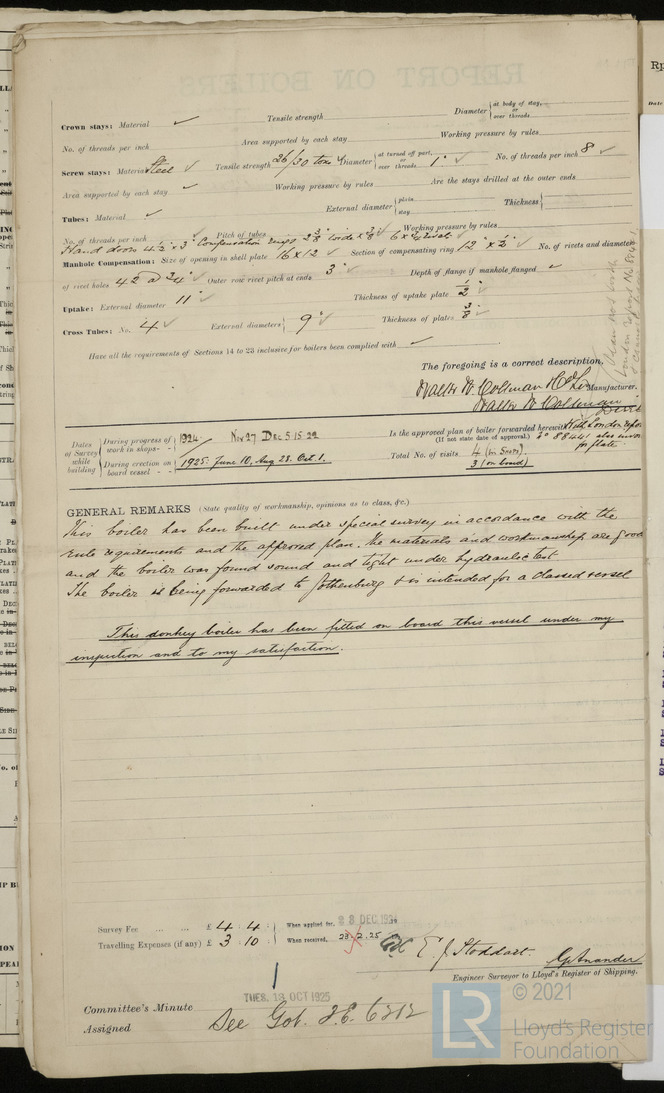 Crown stays: Material ✓ Tensile strength Diameter {at body of stay, or over threads
No. of threads per inch Area supported by each stay Working pressure by rules
Screw stays: Material Steel ✓ Tensile strength 26/30 tons ✓ Diameter {at turned off part, or over threads 1" ✓ No. of threads per inch 8 ✓
Area supported by each stay ✓ Working pressure by rules Are the stays drilled at the outer ends
Tubes: Material ✓ External diameter {plain stay Thickness {
No. of threads per inch ✓ Pitch of tubes ✓ Working pressure by rules
Hand doors 4½" × 3" Compensation rings 2⅜ wide × ⅜ 6 × rivets
Manhole Compensation: Size of opening in shell plate 16 × 12 ✓ Section of compensating ring 12" × ½" ✓ No. of rivets and diameter
of rivet holes 42 @ ¾" ✓ Outer row rivet pitch at ends 3" ✓ Depth of flange if manhole flanged ✓
Uptake: External diameter 11" ✓ Thickness of uptake plate ½" ✓
Cross Tubes: No. 4 ✓ External diameters { 9" ✓ Thickness of plates ⅜" ✓
Have all the requirements of Sections 14 to 23 inclusive for boilers been complied with ✓
The foregoing is a correct description,
Walter W Coltman & Co Ld Manufacturer.
Walter W Coltman
London report No 88441
Dates of Survey while building
During progress of work in shops - - 1924 Nov 27 Dec 5. 15. 22
During erection on board vessel - - - 1925: June 10, Aug 28. Oct. 1.
Is the approved plan of boiler forwarded herewith With London repor
(If not state date of approval.) No 88441 also
for plate.
Total No. of visits 4 (in Shops)
3 (on board)
GENERAL REMARKS (State quality of workmanship, opinions as to class, &c.)
This boiler has been built under special survey in accordance with the
rule requirements and the approved plan. The materials and workmanship are good
and the boiler was found sound and tight under hydraulic test
The boiler is being forwarded to Gothenburg & is intended for a classed vessel
This donkey boiler has been fitted on board this vessel under my
inspection and to my satisfaction.
Survey Fee ... ... £ 4 : 4 : When applied for, 23 DEC 1924
Travelling Expenses (if any) £ 3 : 10 : When received, 23.2.25
E. J. Stoddart.
Engineer Surveyor to Lloyd's Register of Shipping.
Committee's Minute TUES. 13 OCT 1925
Assigned See Got. F.E. 6212
© 2021
LR
Lloyd's Register
Foundation